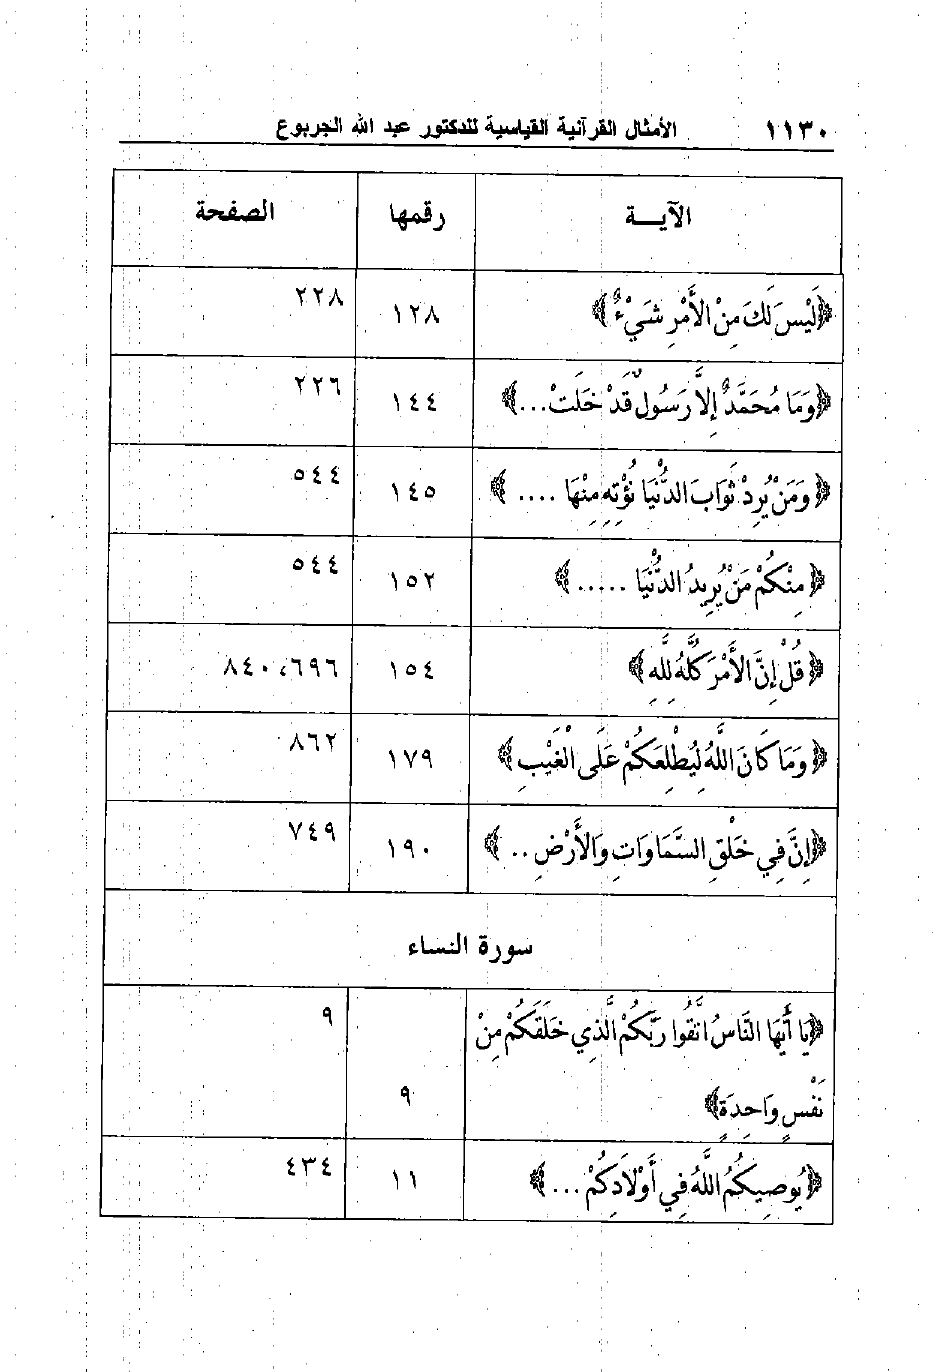 ١١٣٠ الأمثال القرآنية القياسية للدكتور عبد الله الجربوع
الآيـــة رقمها الصفحة
﴿لَيْسَ لَكَ مِنْ الأَمْرِ شَيْءٌ﴾ ١٢٨ ٢٢٨
﴿وَمَا مُحَمَّدٌ إِلاَّ رَسُولٌ قَدْ خَلَتْ...﴾ ١٤٤ ٢٢٦
﴿وَمَنْ يُرِدْ ثَوَابَ الدُّنْيَا نُؤْتِهِ مِنْهَا ....﴾ ١٤٥ ٥٤٤
﴿مِنْكُمْ مَنْ يُرِيدُ الدُّنْيَا .....﴾ ١٥٢ ٥٤٤
﴿قُلْ إِنَّ الأَمْرَ كُلَّهُ لِلَّهِ﴾ ١٥٤ ٦٩٦، ٨٤٠
﴿وَمَا كَانَ اللَّهُ لِيُطْلِعَكُمْ عَلَى الْغَيْبِ﴾ ١٧٩ ٨٦٢
﴿إِنَّ فِي خَلْقِ السَّمَاوَاتِ وَالأَرْضِ ..﴾ ١٩٠ ٧٤٩
سورة النساء
﴿يَا أَيُّهَا النَّاسُ اتَّقُوا رَبَّكُمْ الَّذِي خَلَقَكُمْ مِنْ ٩
نَفْسٍ وَاحِدَةٍ﴾ ٩
﴿يُوصِيكُمُ اللَّهُ فِي أَوْلَادِكُمْ ...﴾ ١١ ٤٣٤